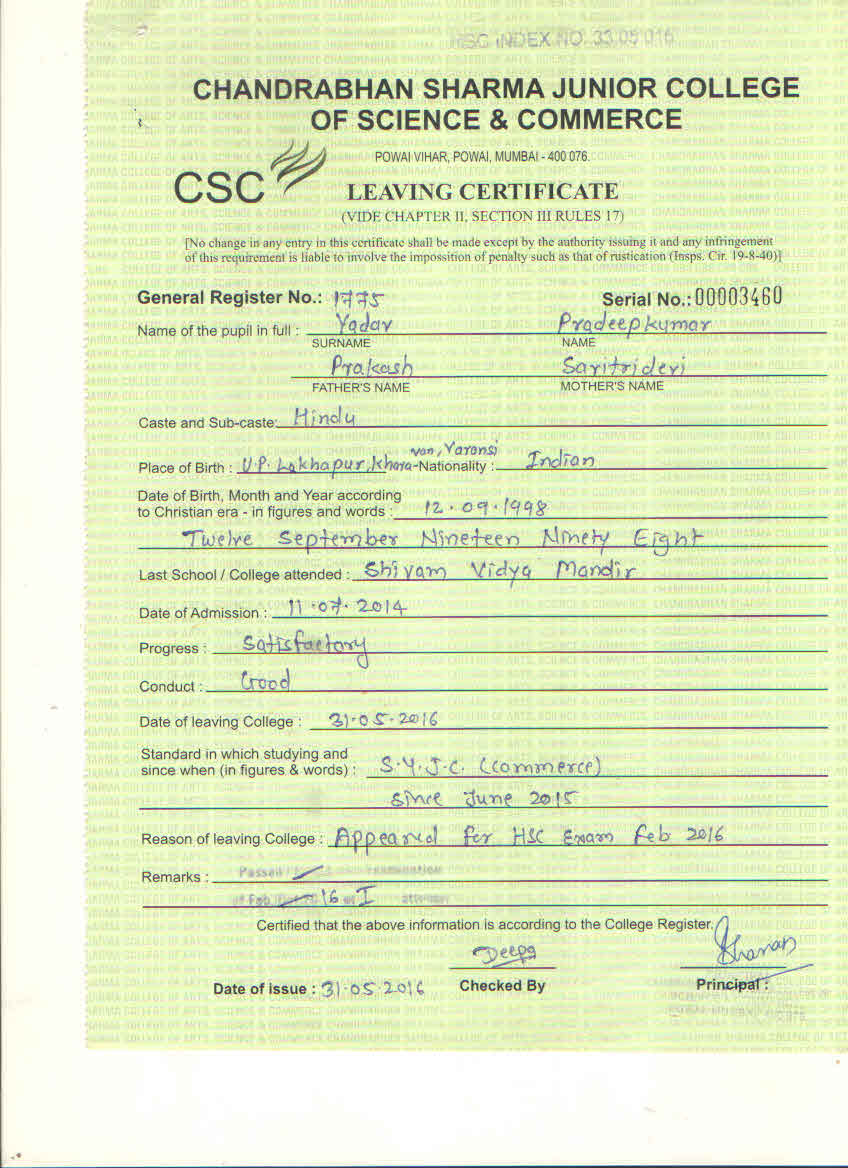 HSC INDEX NO. 33.05.016
CHANDRABHAN SHARMA JUNIOR COLLEGE
OF SCIENCE & COMMERCE
POWAI VIHAR, POWAI, MUMBAI - 400 076.
CSC
LEAVING CERTIFICATE
(VIDE CHAPTER II, SECTION III RULES 17)
[No change in any entry in this certificate shall be made except by the authority issuing it and any infringement
of this requirement is liable to involve the impossition of penalty such as that of rustication (Insps. Cir. 19-8-40)]
General Register No.: 1775 Serial No.: 00003460
Name of the pupil in full : Yadav Pradeepkumar
SURNAME NAME
Prakash Savitridevi
FATHER'S NAME MOTHER'S NAME
Caste and Sub-caste: Hindu
van, Varansi
Place of Birth : U.P. Lakhapur, Khara- Nationality : Indian
Date of Birth, Month and Year according
to Christian era - in figures and words : 12.09.1998
Twelve September Nineteen Ninety Eight
Last School / College attended : Shivam Vidya Mandir
Date of Admission : 11.07.2014
Progress : Satisfactory
Conduct : Good
Date of leaving College : 31.05.2016
Standard in which studying and
since when (in figures & words) : S.Y.J.C. (Commerce)
since June 2015
Reason of leaving College : Appeared for HSC Exam Feb 2016
Remarks : Passed examination
of Feb 16 at I attempt
Certified that the above information is according to the College Register.
Deepa
Date of issue : 31.05.2016 Checked By Principal :